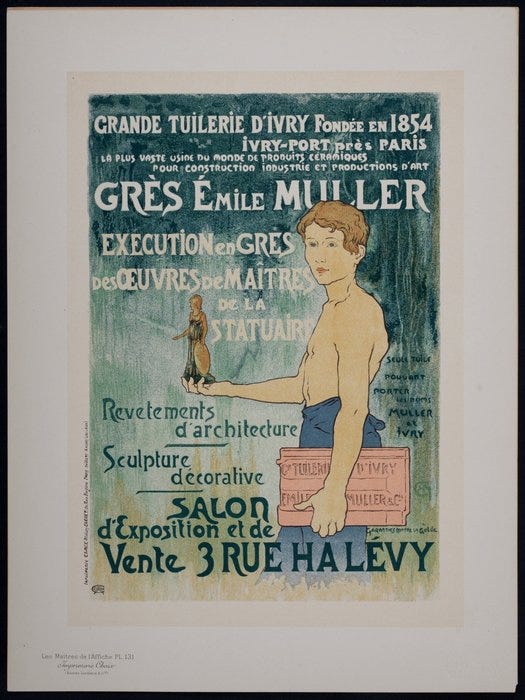 GRANDE TUILERIE D'IVRY FONDÉE EN 1854
IVRY-PORT près PARIS
LA PLUS VASTE USINE DU MONDE DE PRODUITS CÉRAMIQUES
POUR CONSTRUCTION INDUSTRIE ET PRODUCTIONS D'ART
GRÈS ÉMILE MULLER
EXECUTION en GRÈS
des ŒUVRES de MAÎTRES
DE LA
STATUAIR
SEULE TUILE
POUVANT
PORTER
LES NOMS
MULLER
et
IVRY
Revetements
d'architecture
Sculpture
décorative
TUILERIE D'IVRY
EMILE MULLER & Cie
SALON
d'Exposition et de
Vente 3 RUE HALÉVY
Les Maîtres de l'Affiche PL. 131
Imprimerie Chaix